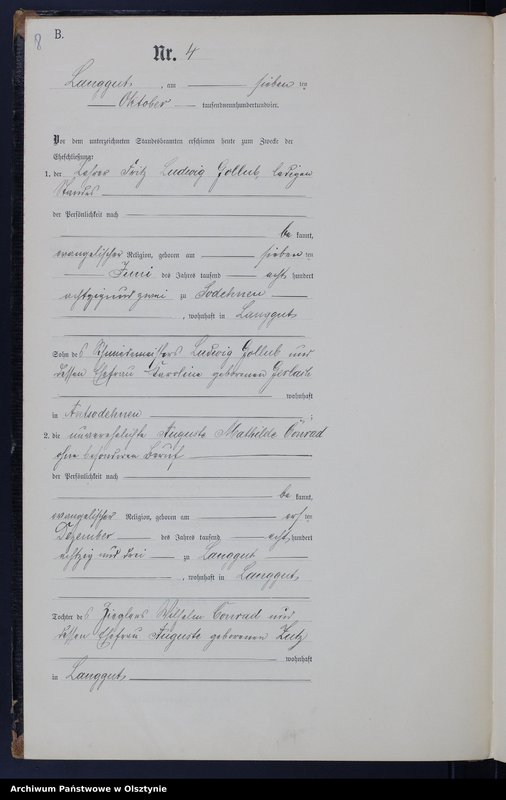 8
B.
Nr. 4
Langgut, am sieben ten
Oktober tausendneunhundertundvier.
Vor dem unterzeichneten Standesbeamten erschienen heute zum Zwecke der
Eheschließung:
1. der Lehrer Fritz Ludwig Gollub, ledigen
Standes
der Persönlichkeit nach
be kannt,
evangelischer Religion, geboren am sieben ten
Juni des Jahres tausend acht hundert
achtzig und zwei zu Sodehnen
, wohnhaft in Langgut
Sohn des Schmiedemeisters Ludwig Gollub und
dessen Ehefrau Karoline geborenen Gerlach
wohnhaft
in Antsodehnen ;
2. die unverehelichte Auguste Mathilde Conrad
ohne besonderen Beruf
der Persönlichkeit nach
be kannt,
evangelischer Religion, geboren am ten
Dezember des Jahres tausend acht hundert
achtzig und drei zu Langgut
, wohnhaft in Langgut
Tochter des Zieglers Wilhelm Conrad und
dessen Ehefrau Auguste geborenen
wohnhaft
in Langgut
Archiwum Państwowe w Olsztynie